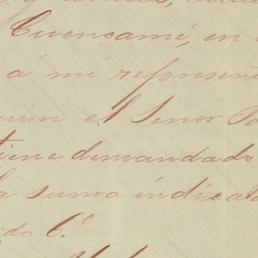 Cuencamé, en
á mi represen
el Señor
tiene demandado
a suma indicad
do 6.º